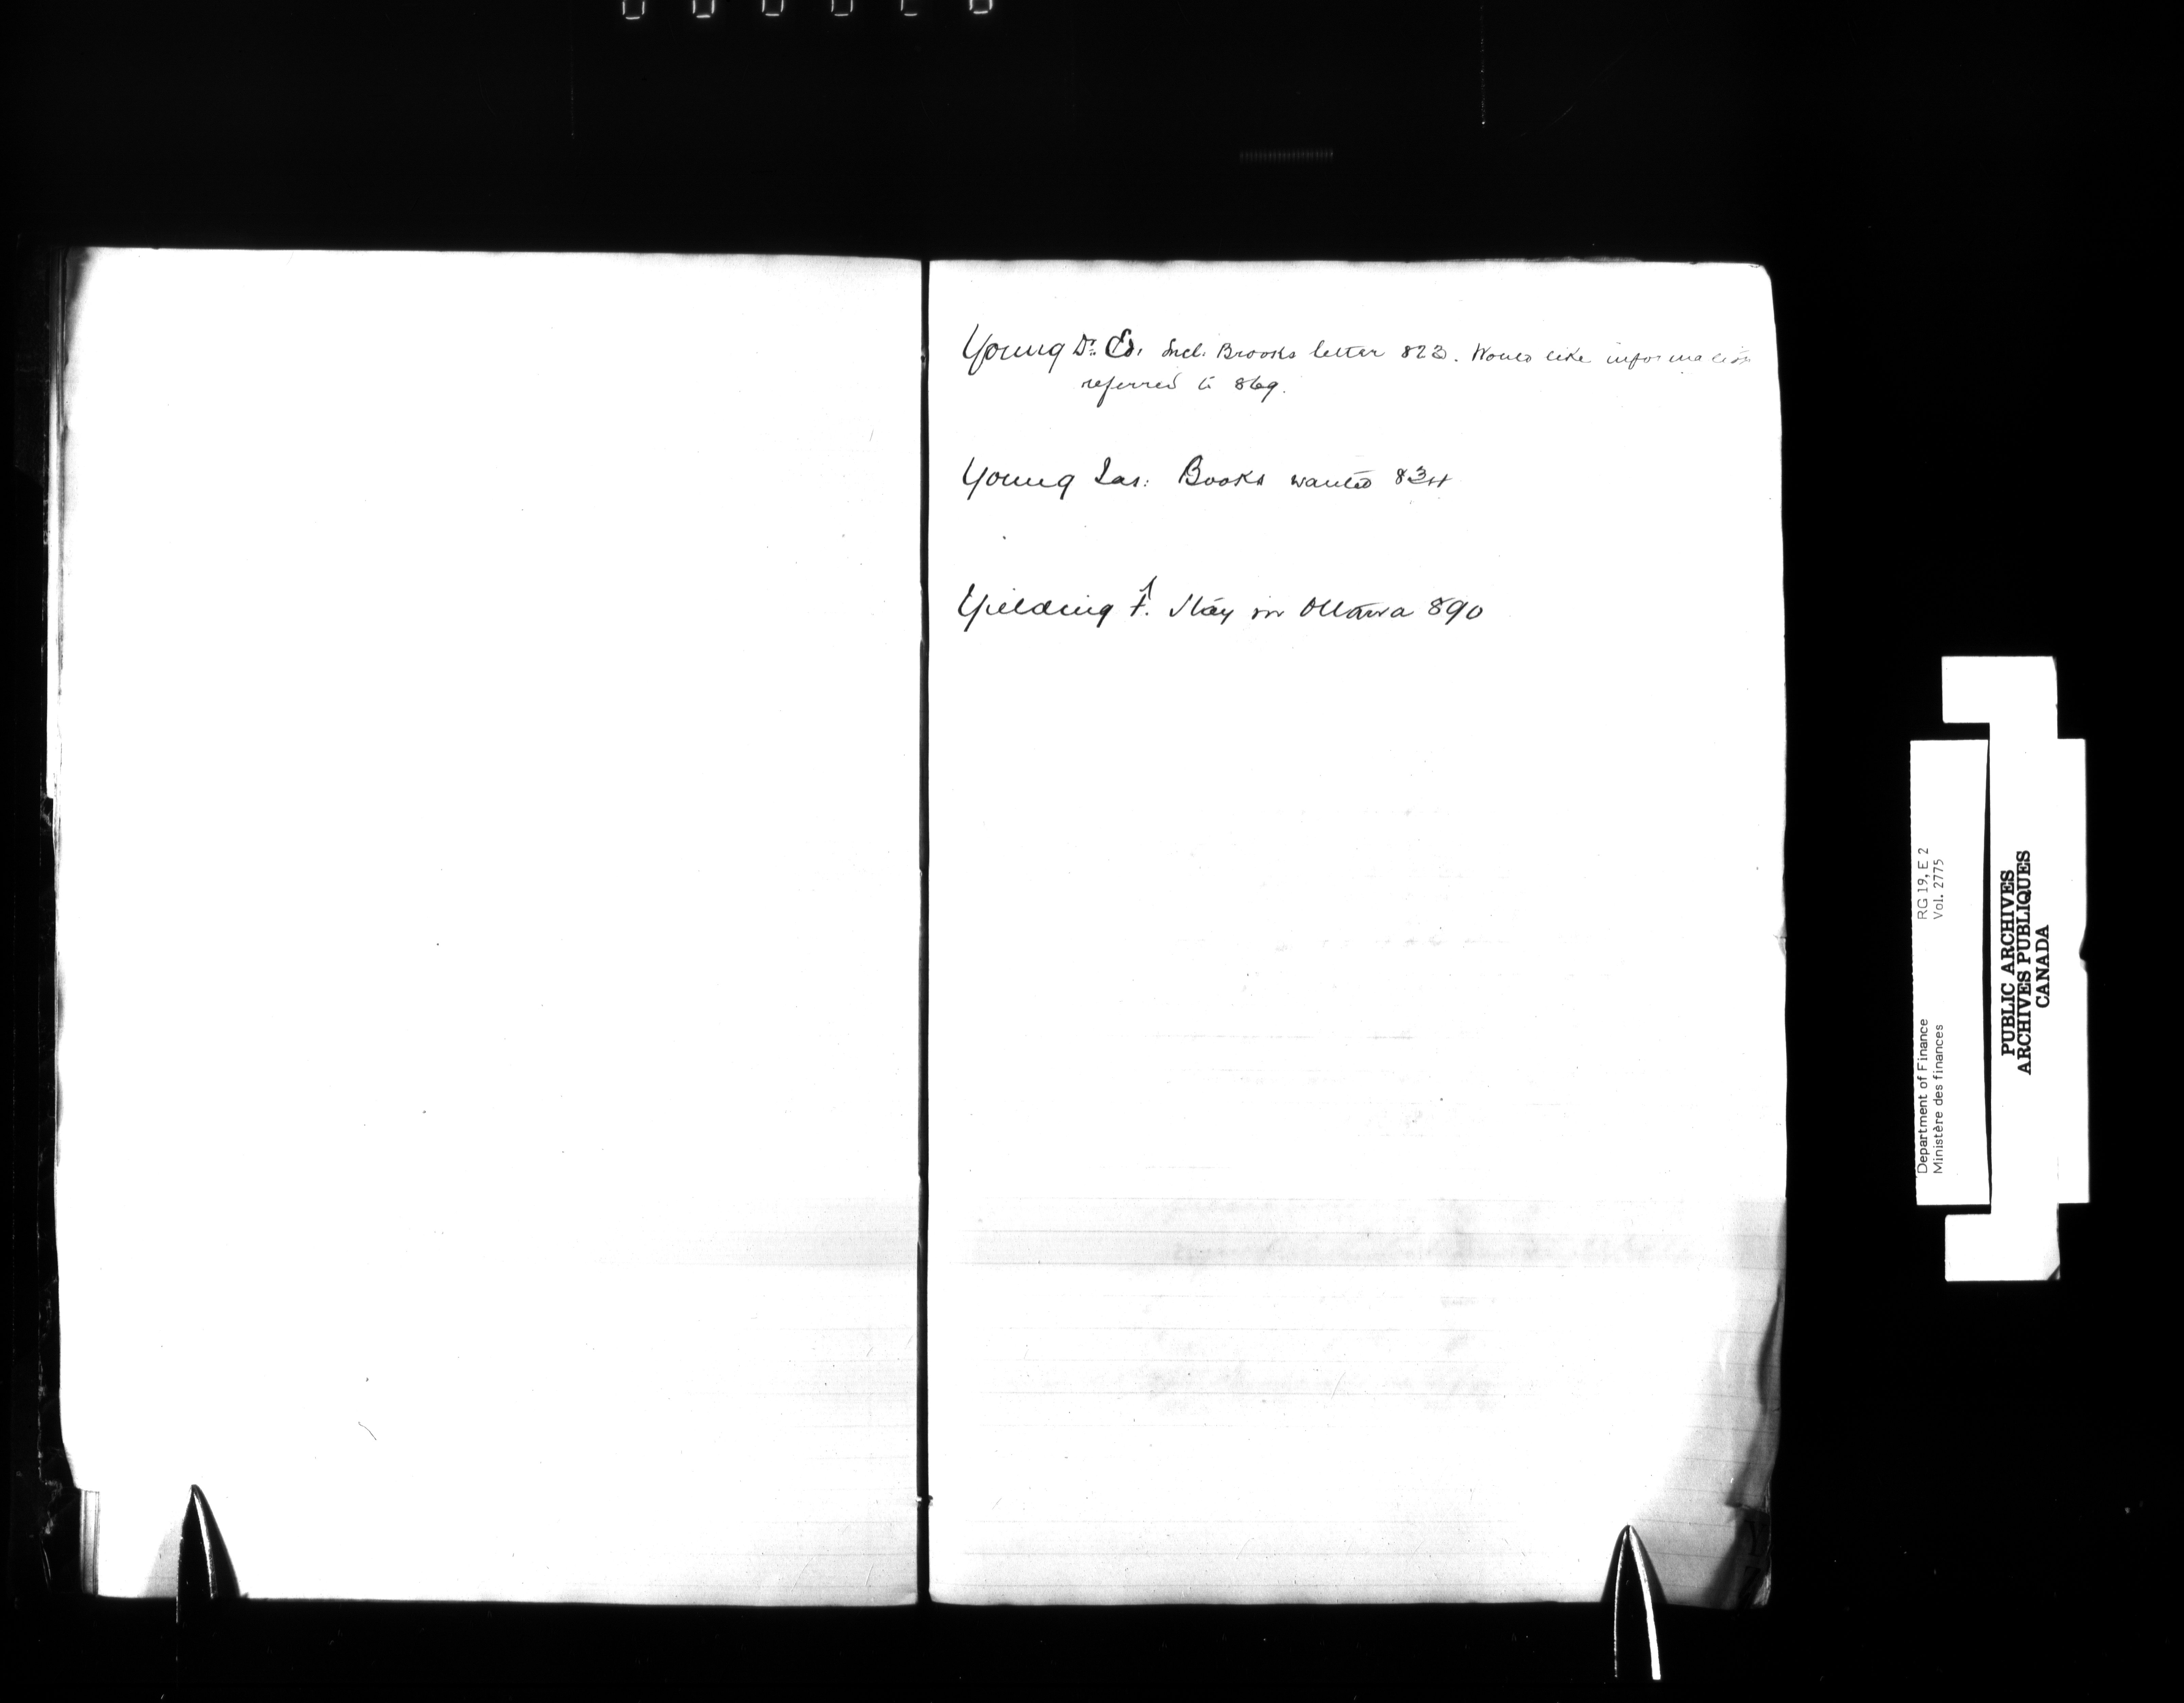 Young Dr. Ed. Incl. Brooks letter 823. Would like information
referred to 869.
Young Jas: Books wanted 834
Yielding F. Stay in Ottawa 890
Department of Finance RG 19, E 2
Ministère des finances Vol. 2775
PUBLIC ARCHIVES
ARCHIVES PUBLIQUES
CANADA